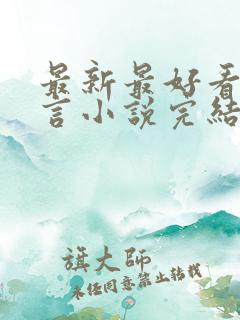 最新最好看
言小說完結
旗大師
未经同意禁止转载